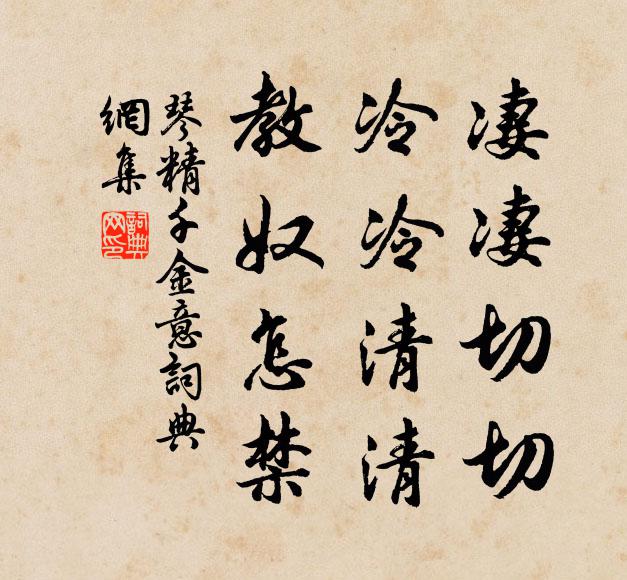 凄凄切切
冷冷清清
教奴怎禁
琴精千金意詞典
網集
詞典
网印